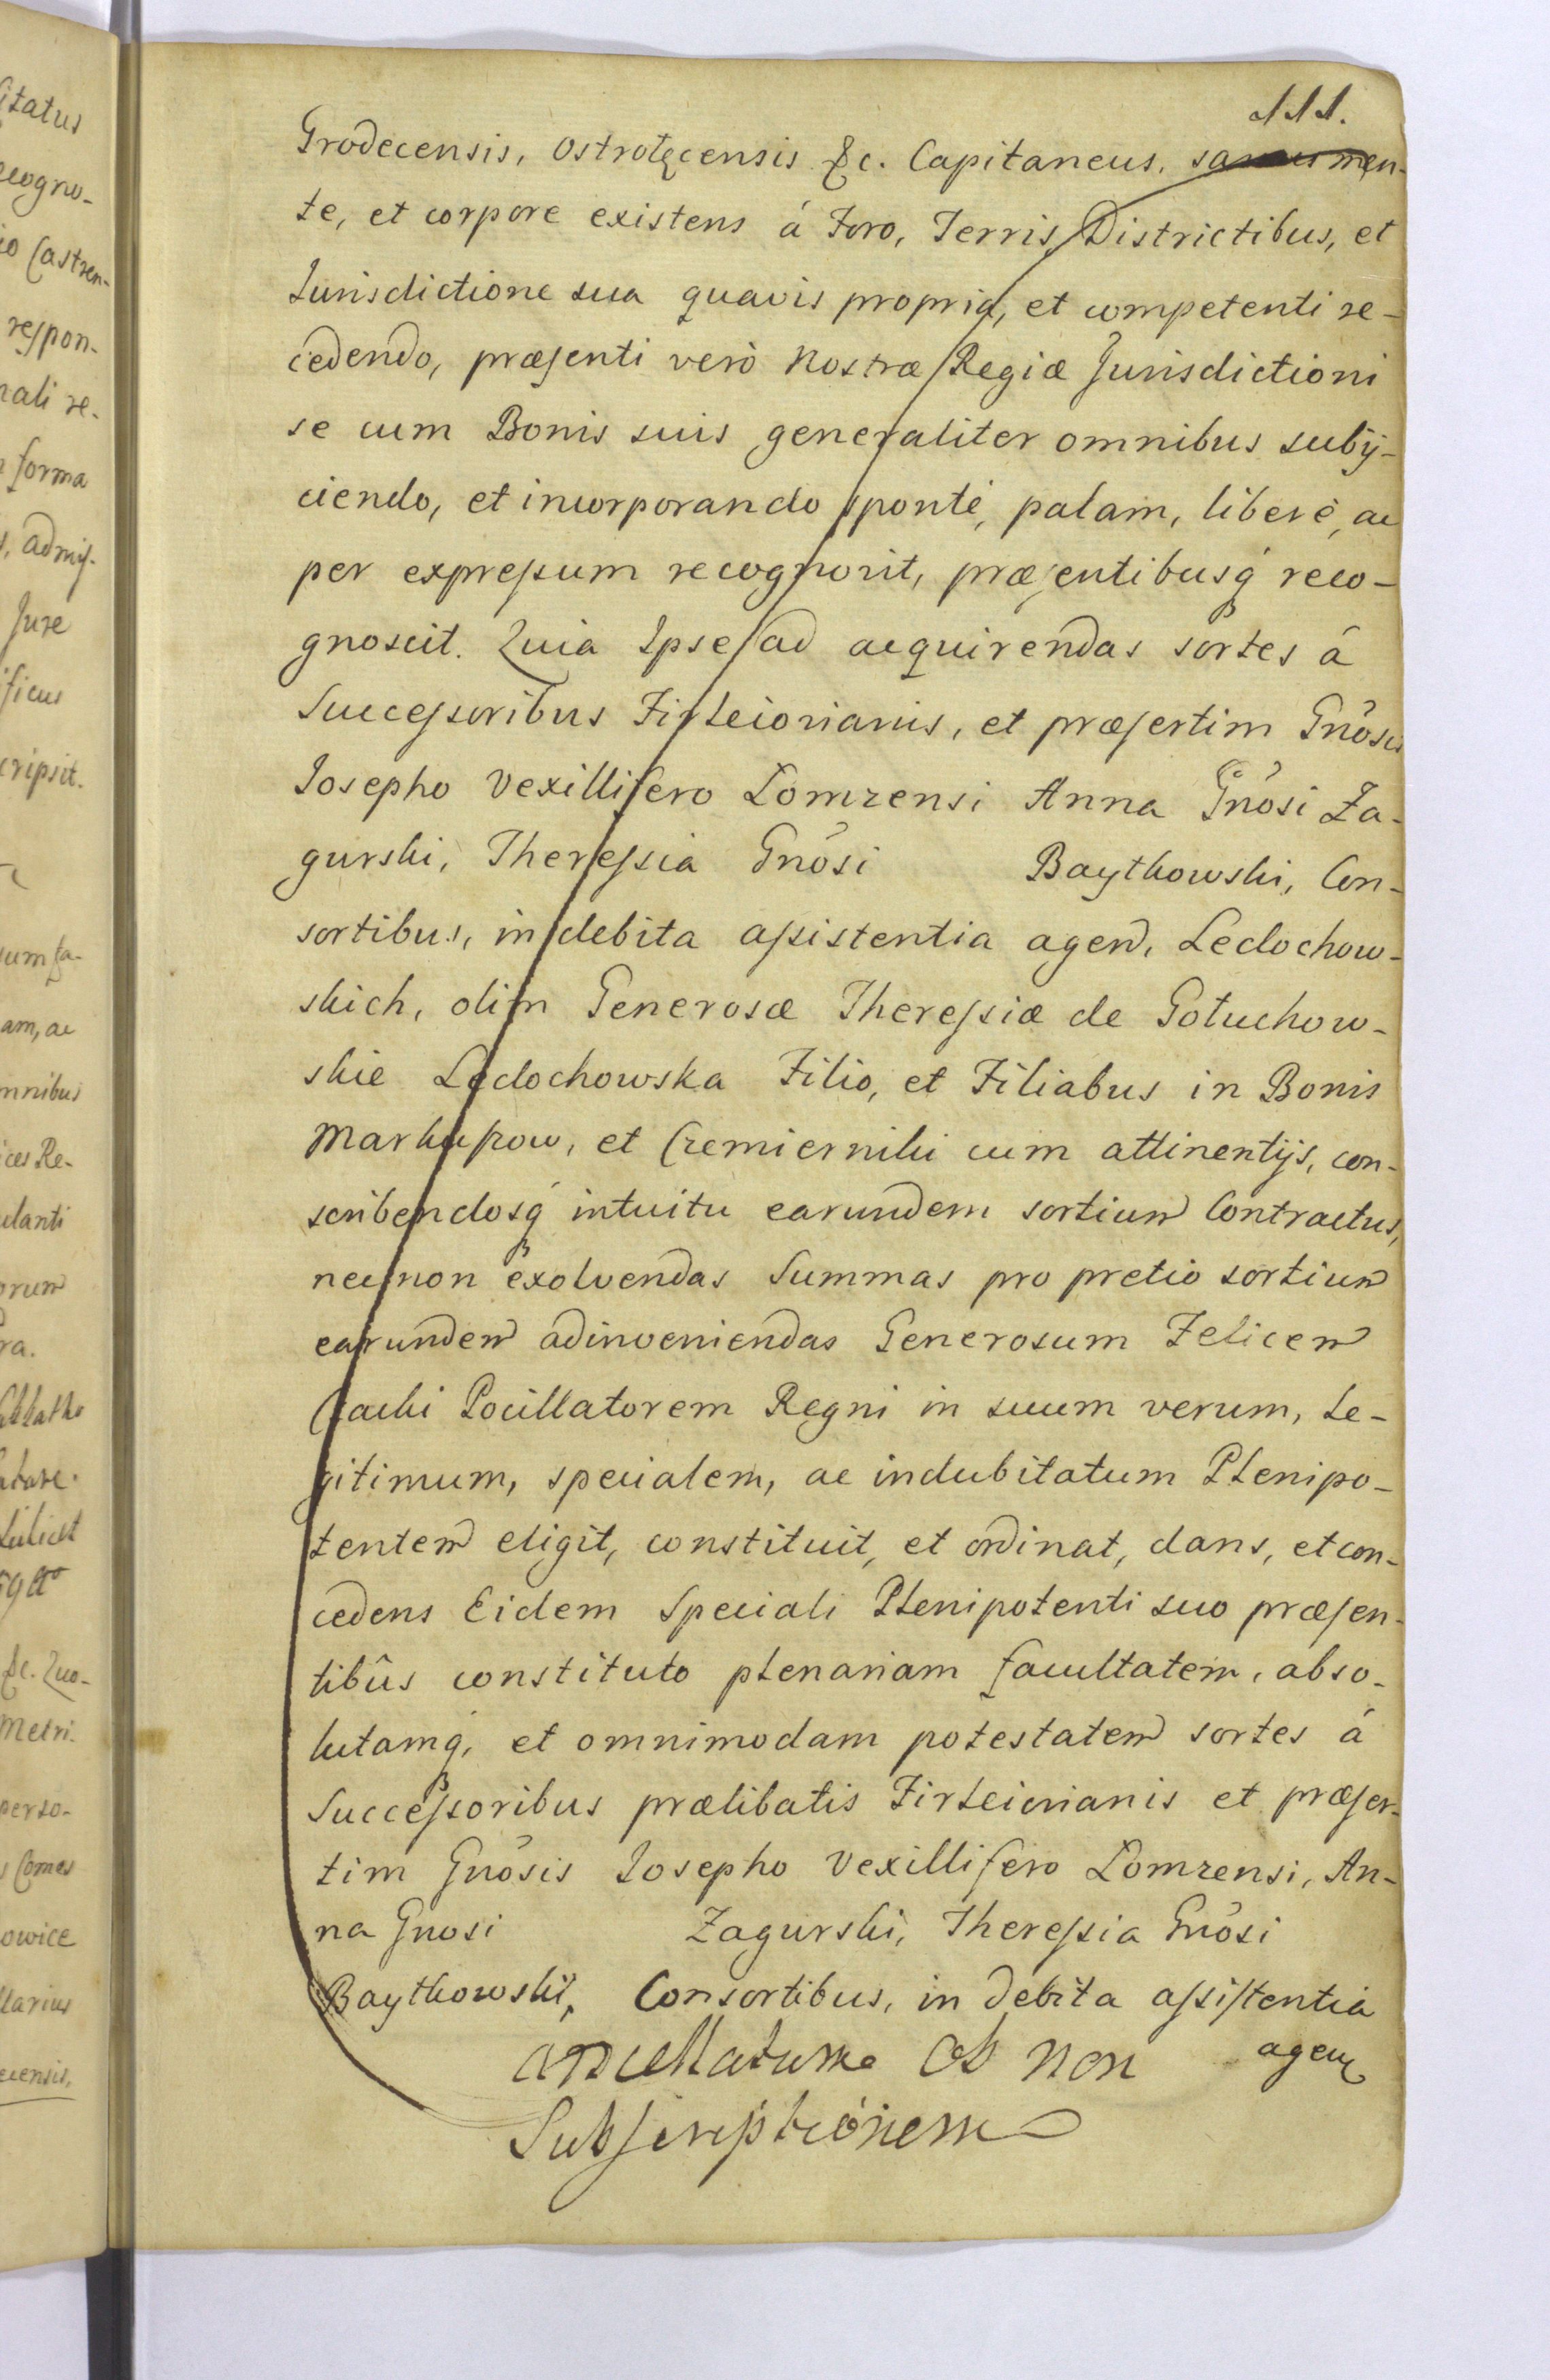 111.
Grodecensis, Ostrołęcensis &c. Capitaneus, sanus men-
te, et corpore existens á Foro, Terris, Districtibus, et
Iurisdictione sua quavis propria, et competenti re-
cedendo, præsenti verò Nostræ Regiæ Jurisdictioni
se cum Bonis suis generaliter omnibus subij-
ciendo, et incorporando sponté, palam, liberè, ac
per expressum recognovit, præsentibusq́ reco-
gnoscit. Quia Ipse ad acquirendas sortes á
Successoribus Firleiovianis, et præsertim Gnõsis
Iosepho Vexillifero Łomzensi Anna Gñosi Za-
gurski, Theressia Gnõsi Baytkowski, Con-
sortibus, in debita assistentia agen, Ledochow-
skich, olim Generosæ Theressiæ de Gołuchow-
skie Ledochowska Filio, et Filiabus in Bonis
Markuszow, et Czemierniki cum attinentijs, con-
scribendosq́ intuitu earundem sortium Contractus,
nec non exolvendas Summas pro pretio sortium
earundem adinveniendas Generosum Felicem
Czacki Pocillatorem Regni in suum verum, Le-
gitimum, specialem, ac indubitatum Plenipo-
tentem eligit, constituit, et ordinat, dans, et con-
cedens Eidem Speciali Plenipotenti suo præsen-
tibûs constituto plenariam facultatem, abso-
lutamq́, et omnimodam potestatem sortes á
Successoribus prælibatis Firleiovianis et præser-
tim Gnõsis Iosepho Vexillifero Łomzensi, An-
na Gnosi Zagurski, Theressia Gnõsi
Baytkowski, Consortibus, in debita assistentia
agen
cancellatum ob non
Subscriptionem